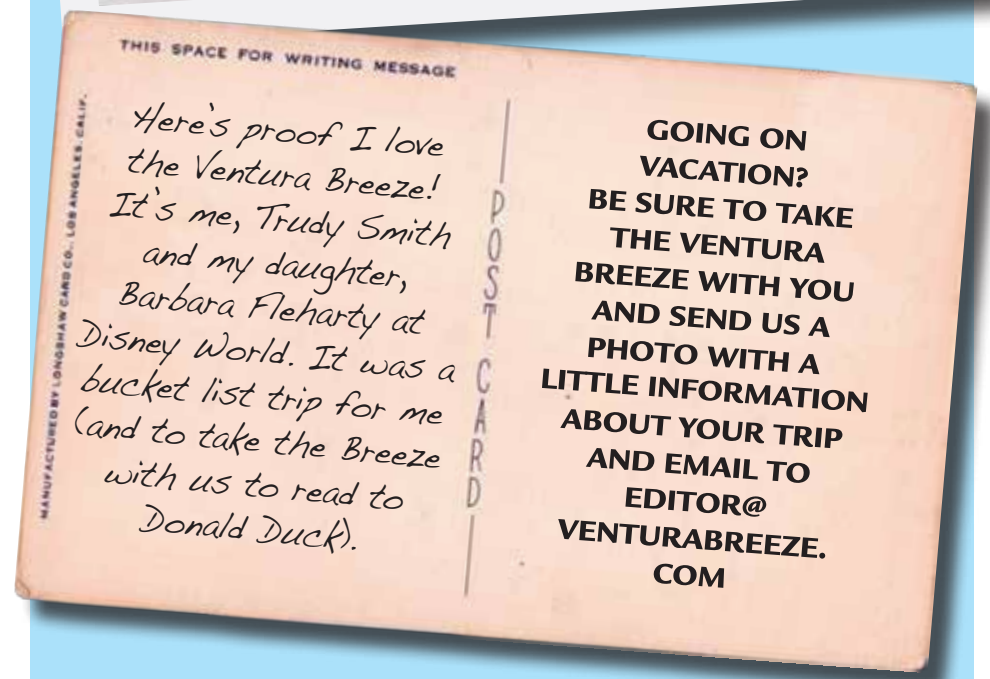 THIS SPACE FOR WRITING MESSAGE
MANUFACTURED BY LONGSHAW CARD CO., LOS ANGELES, CALIF.
Here's proof I love
the Ventura Breeze!
It's me, Trudy Smith
and my daughter,
Barbara Fleharty at
Disney World. It was a
bucket list trip for me
(and to take the Breeze
with us to read to
Donald Duck).
POST CARD
GOING ON
VACATION?
BE SURE TO TAKE
THE VENTURA
BREEZE WITH YOU
AND SEND US A
PHOTO WITH A
LITTLE INFORMATION
ABOUT YOUR TRIP
AND EMAIL TO
EDITOR@
VENTURABREEZE.
COM